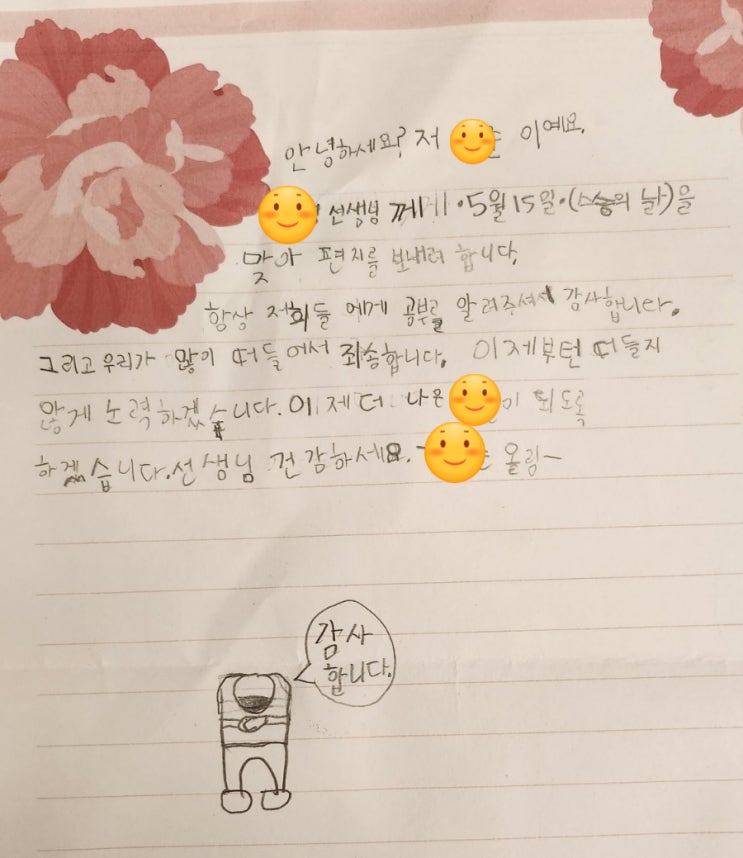 안녕하세요? 저 이예요.
선생님 께 ·5월 15일·(스승의 날)을
맞아 편지를 보내려 합니다.
항상 저희들 에게 공부를 알려주셔서 감사합니다.
그리고 우리가 많이 떠들어서 죄송합니다. 이제부턴 떠들지
않게 노력하겠습니다. 이제 더 나은 이 되도록
하겠습니다. 선생님 건강하세요. 올림~
감사
합니다.